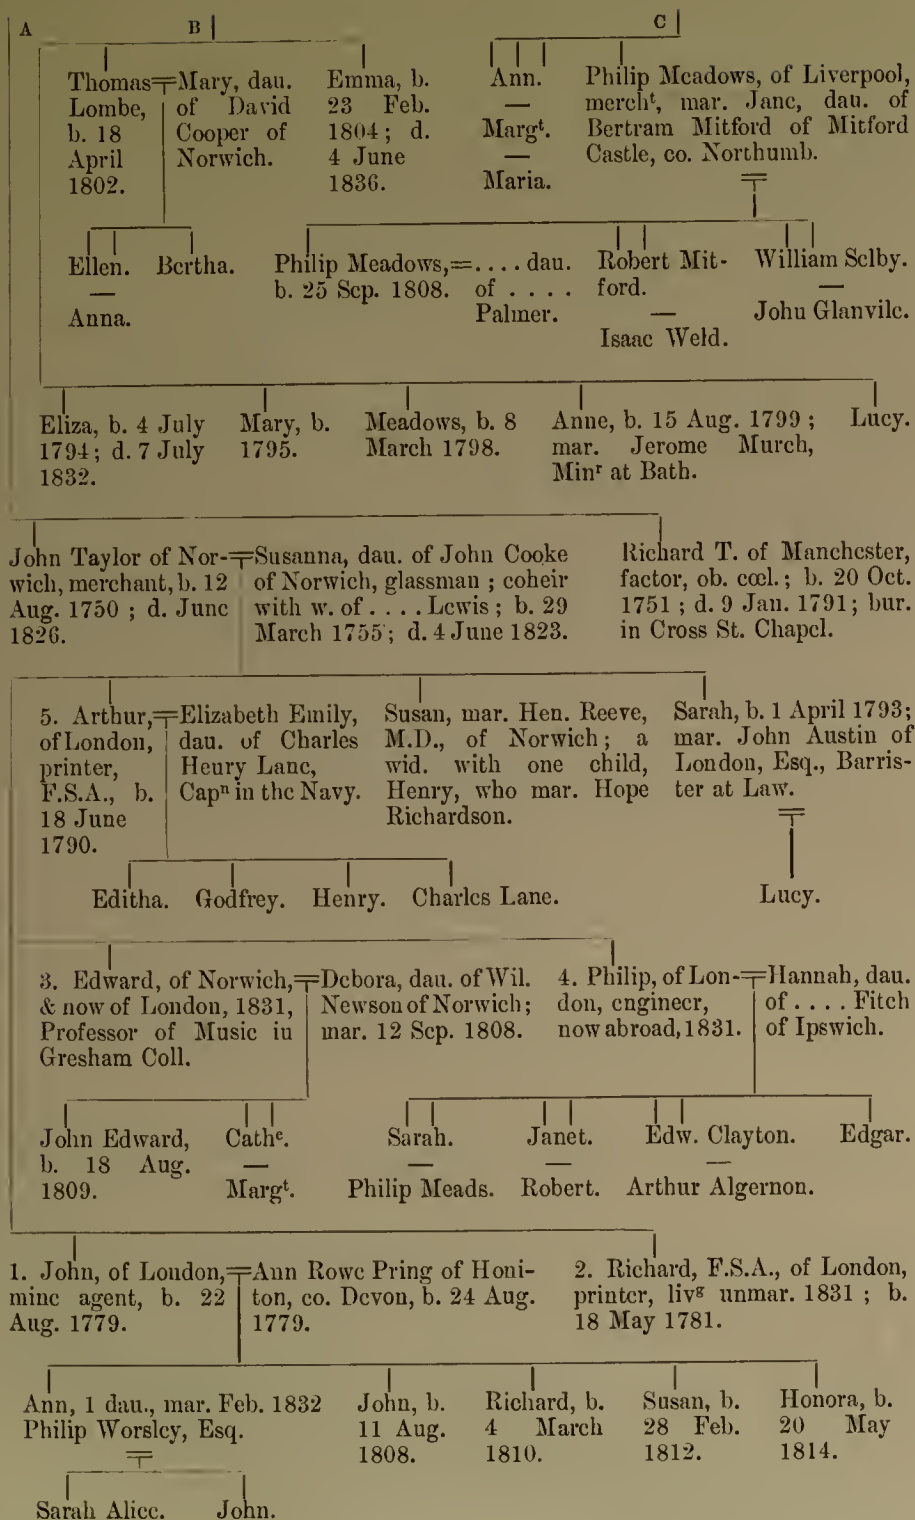 A
B
C
Thomas
Lombe,
b. 18
April
1802.
Mary, dau.
of David
Cooper of
Norwich.
Emma, b.
23 Feb.
1804; d.
4 June
1836.
Ann.
—
Margt.
—
Maria.
Philip Meadows, of Liverpool,
mercht, mar. Jane, dau. of
Bertram Mitford of Mitford
Castle, co. Northumb.
Ellen.
—
Anna.
Bertha.
Philip Meadows,
b. 25 Sep. 1808.
. . . . dau.
of . . . .
Palmer.
Robert Mit-
ford.
—
Isaac Weld.
William Selby.
—
John Glanvile.
Eliza, b. 4 July
1794; d. 7 July
1832.
Mary, b.
1795.
Meadows, b. 8
March 1798.
Anne, b. 15 Aug. 1799;
mar. Jerome Murch,
Minr at Bath.
Lucy.
John Taylor of Nor-
wich, merchant, b. 12
Aug. 1750; d. June
1826.
Susanna, dau. of John Cooke
of Norwich, glassman; coheir
with w. of . . . . Lewis; b. 29
March 1755; d. 4 June 1823.
Richard T. of Manchester,
factor, ob. cœl.; b. 20 Oct.
1751; d. 9 Jan. 1791; bur.
in Cross St. Chapel.
5. Arthur,
of London,
printer,
F.S.A., b.
18 June
1790.
Elizabeth Emily,
dau. of Charles
Henry Lane,
Capn in the Navy.
Susan, mar. Hen. Reeve,
M.D., of Norwich; a
wid. with one child,
Henry, who mar. Hope
Richardson.
Sarah, b. 1 April 1793;
mar. John Austin of
London, Esq., Barris-
ter at Law.
Editha.
Godfrey.
Henry.
Charles Lane.
Lucy.
3. Edward, of Norwich,
& now of London, 1831,
Professor of Music in
Gresham Coll.
Debora, dau. of Wil.
Newson of Norwich;
mar. 12 Sep. 1808.
4. Philip, of Lon-
don, engineer,
now abroad, 1831.
Hannah, dau.
of . . . . Fitch
of Ipswich.
John Edward,
b. 18 Aug.
1809.
Cathe.
—
Margt.
Sarah.
—
Philip Meads.
Janet.
—
Robert.
Edw. Clayton.
—
Arthur Algernon.
Edgar.
1. John, of London,
mine agent, b. 22
Aug. 1779.
Ann Rowe Pring of Honi-
ton, co. Devon, b. 24 Aug.
1779.
2. Richard, F.S.A., of London,
printer, livg unmar. 1831; b.
18 May 1781.
Ann, 1 dau., mar. Feb. 1832
Philip Worsley, Esq.
John, b.
11 Aug.
1808.
Richard, b.
4 March
1810.
Susan, b.
28 Feb.
1812.
Honora, b.
20 May
1814.
Sarah Alice.
John.